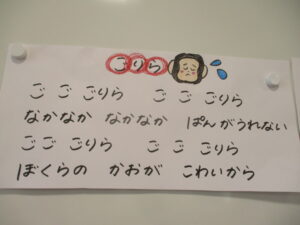 ごりら
ご ご ごりら ご ご ごりら
なかなか なかなか ぱんがうれない
ご ご ごりら ご ご ごりら
ぼくらの かおが こわいから